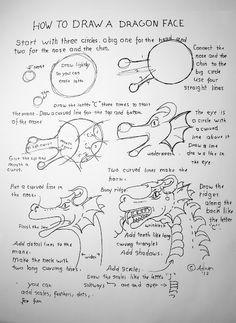 HOW TO DRAW A DRAGON FACE
Start with three circles, a big one for the head and
two for the nose and the chin.
Draw lightly
So you can
erase later
Connect
the nose
and the
chin to the
big circle
Use four
straight lines
Draw the letter "C" three times to start
the mane. Draw a curved line for the top and bottom
of the mouth.
The eye
is a
circle with
a curved
line above it
Draw a line
in
the eye.
underneath
Two curved lines make the
horn.
Put a curved line in
the nose.
Bony ridge
Draw the
ridges
along the
back like
the letter
Finish the
Add detail lines to the
mane.
Make the back with
two long curving lines.
underneath
Add teeth like long
curving triangles
Add shadows.
Add Scales:
Draw the scales like the letter
sideways
over and over
you can
add scales, feathers, dots,
for fun